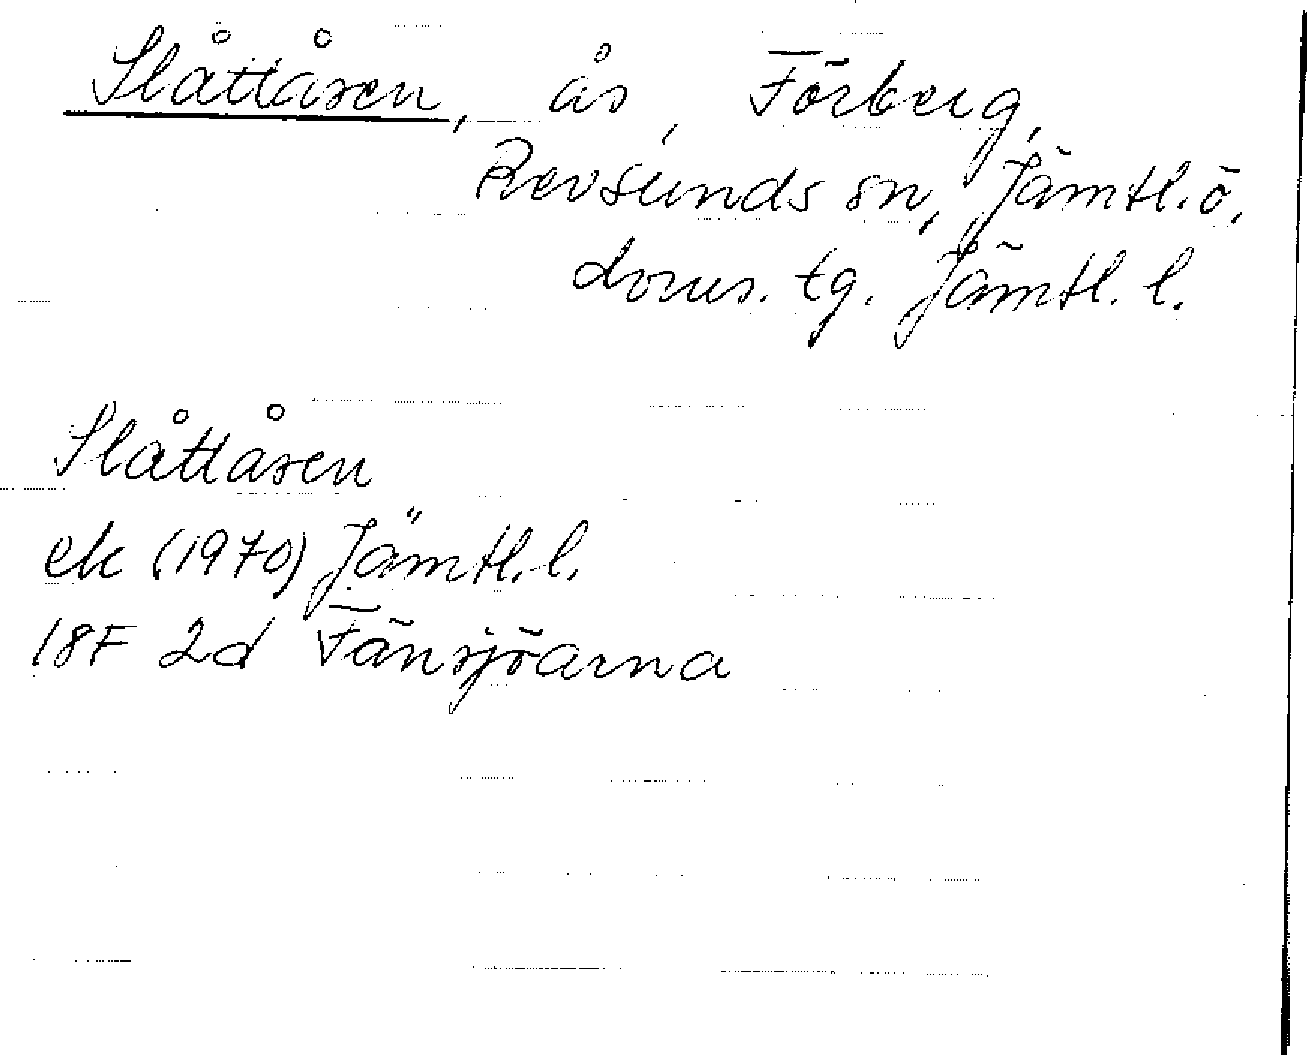 Slåttåsen, ås, Förberg,
Revsunds sn, Jämtl. ö.
doms. tg. Jämtl. l.
Slåttåsen
ek (1970) Jämtl. l.
18F 2d Fänsjöarna